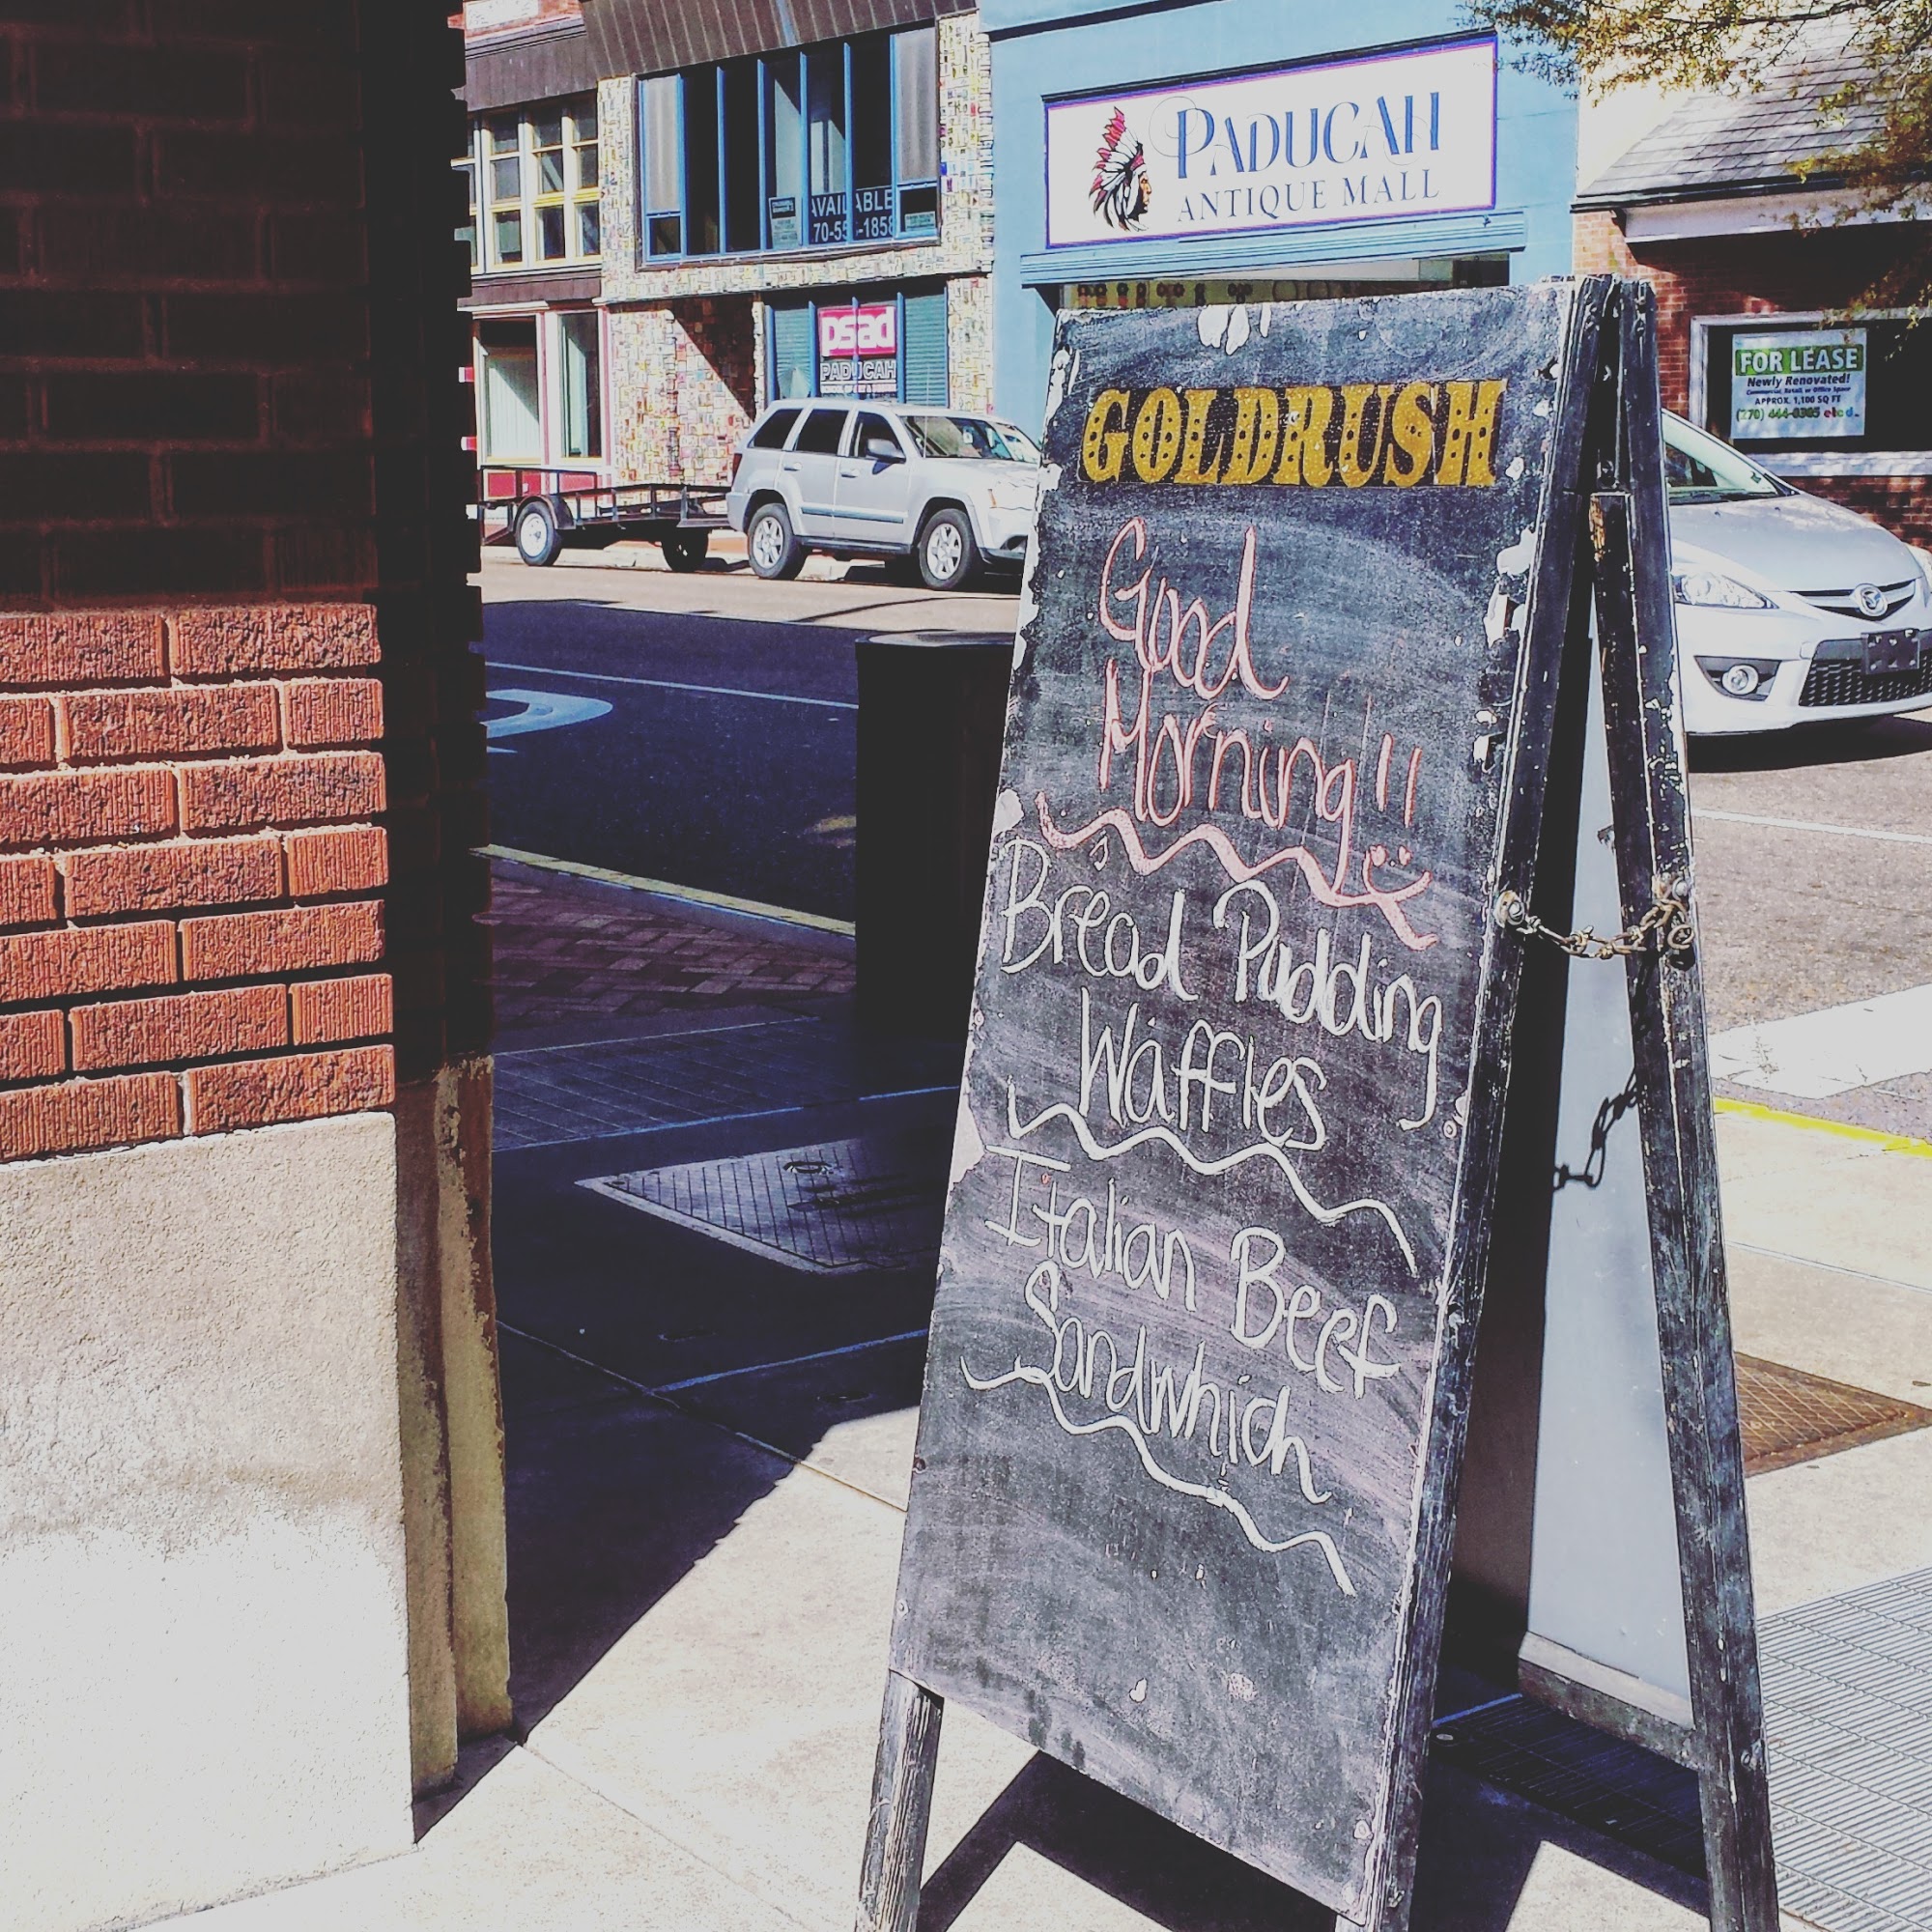 PADUCAH
ANTIQUE MALL
AVAILABLE
psad
PADUCAH
FOR LEASE
Newly Renovated!
Commercial, Retail, or Office Space
APPROX. 1,100 SQ FT
GOLDRUSH
Good
Morning!!
Bread Pudding
Waffles
Italian Beef
Sandwhich